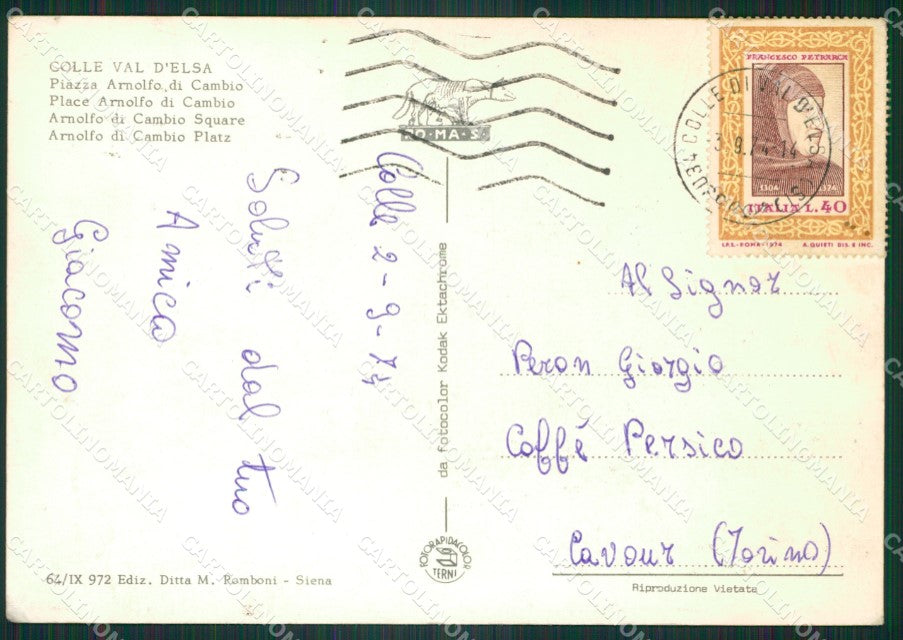 COLLE VAL D'ELSA
Piazza Arnolfo di Cambio
Place Arnolfo di Cambio
Arnolfo di Cambio Square
Arnolfo di Cambio Platz
Colle 2-9-74
Saluti dal tuo
Amico
Giacomo
64/IX 972 Ediz. Ditta M. Romboni - Siena
da fotocolor Kodak Ektachrome
FOTORAPIDACOLOR
TERNI
RO·MA·S
COLLE DI VAL D'ELSA
3.9.74-14
FRANCESCO PETRARCA
1304 1374
ITALIA L.40
I.P.S.-ROMA-1974 A. QUIETI DIS. E INC.
Al Signor
Peron Giorgio
Caffé Persico
Cavour (Torino)
Riproduzione Vietata
CARTOLINOMANIA